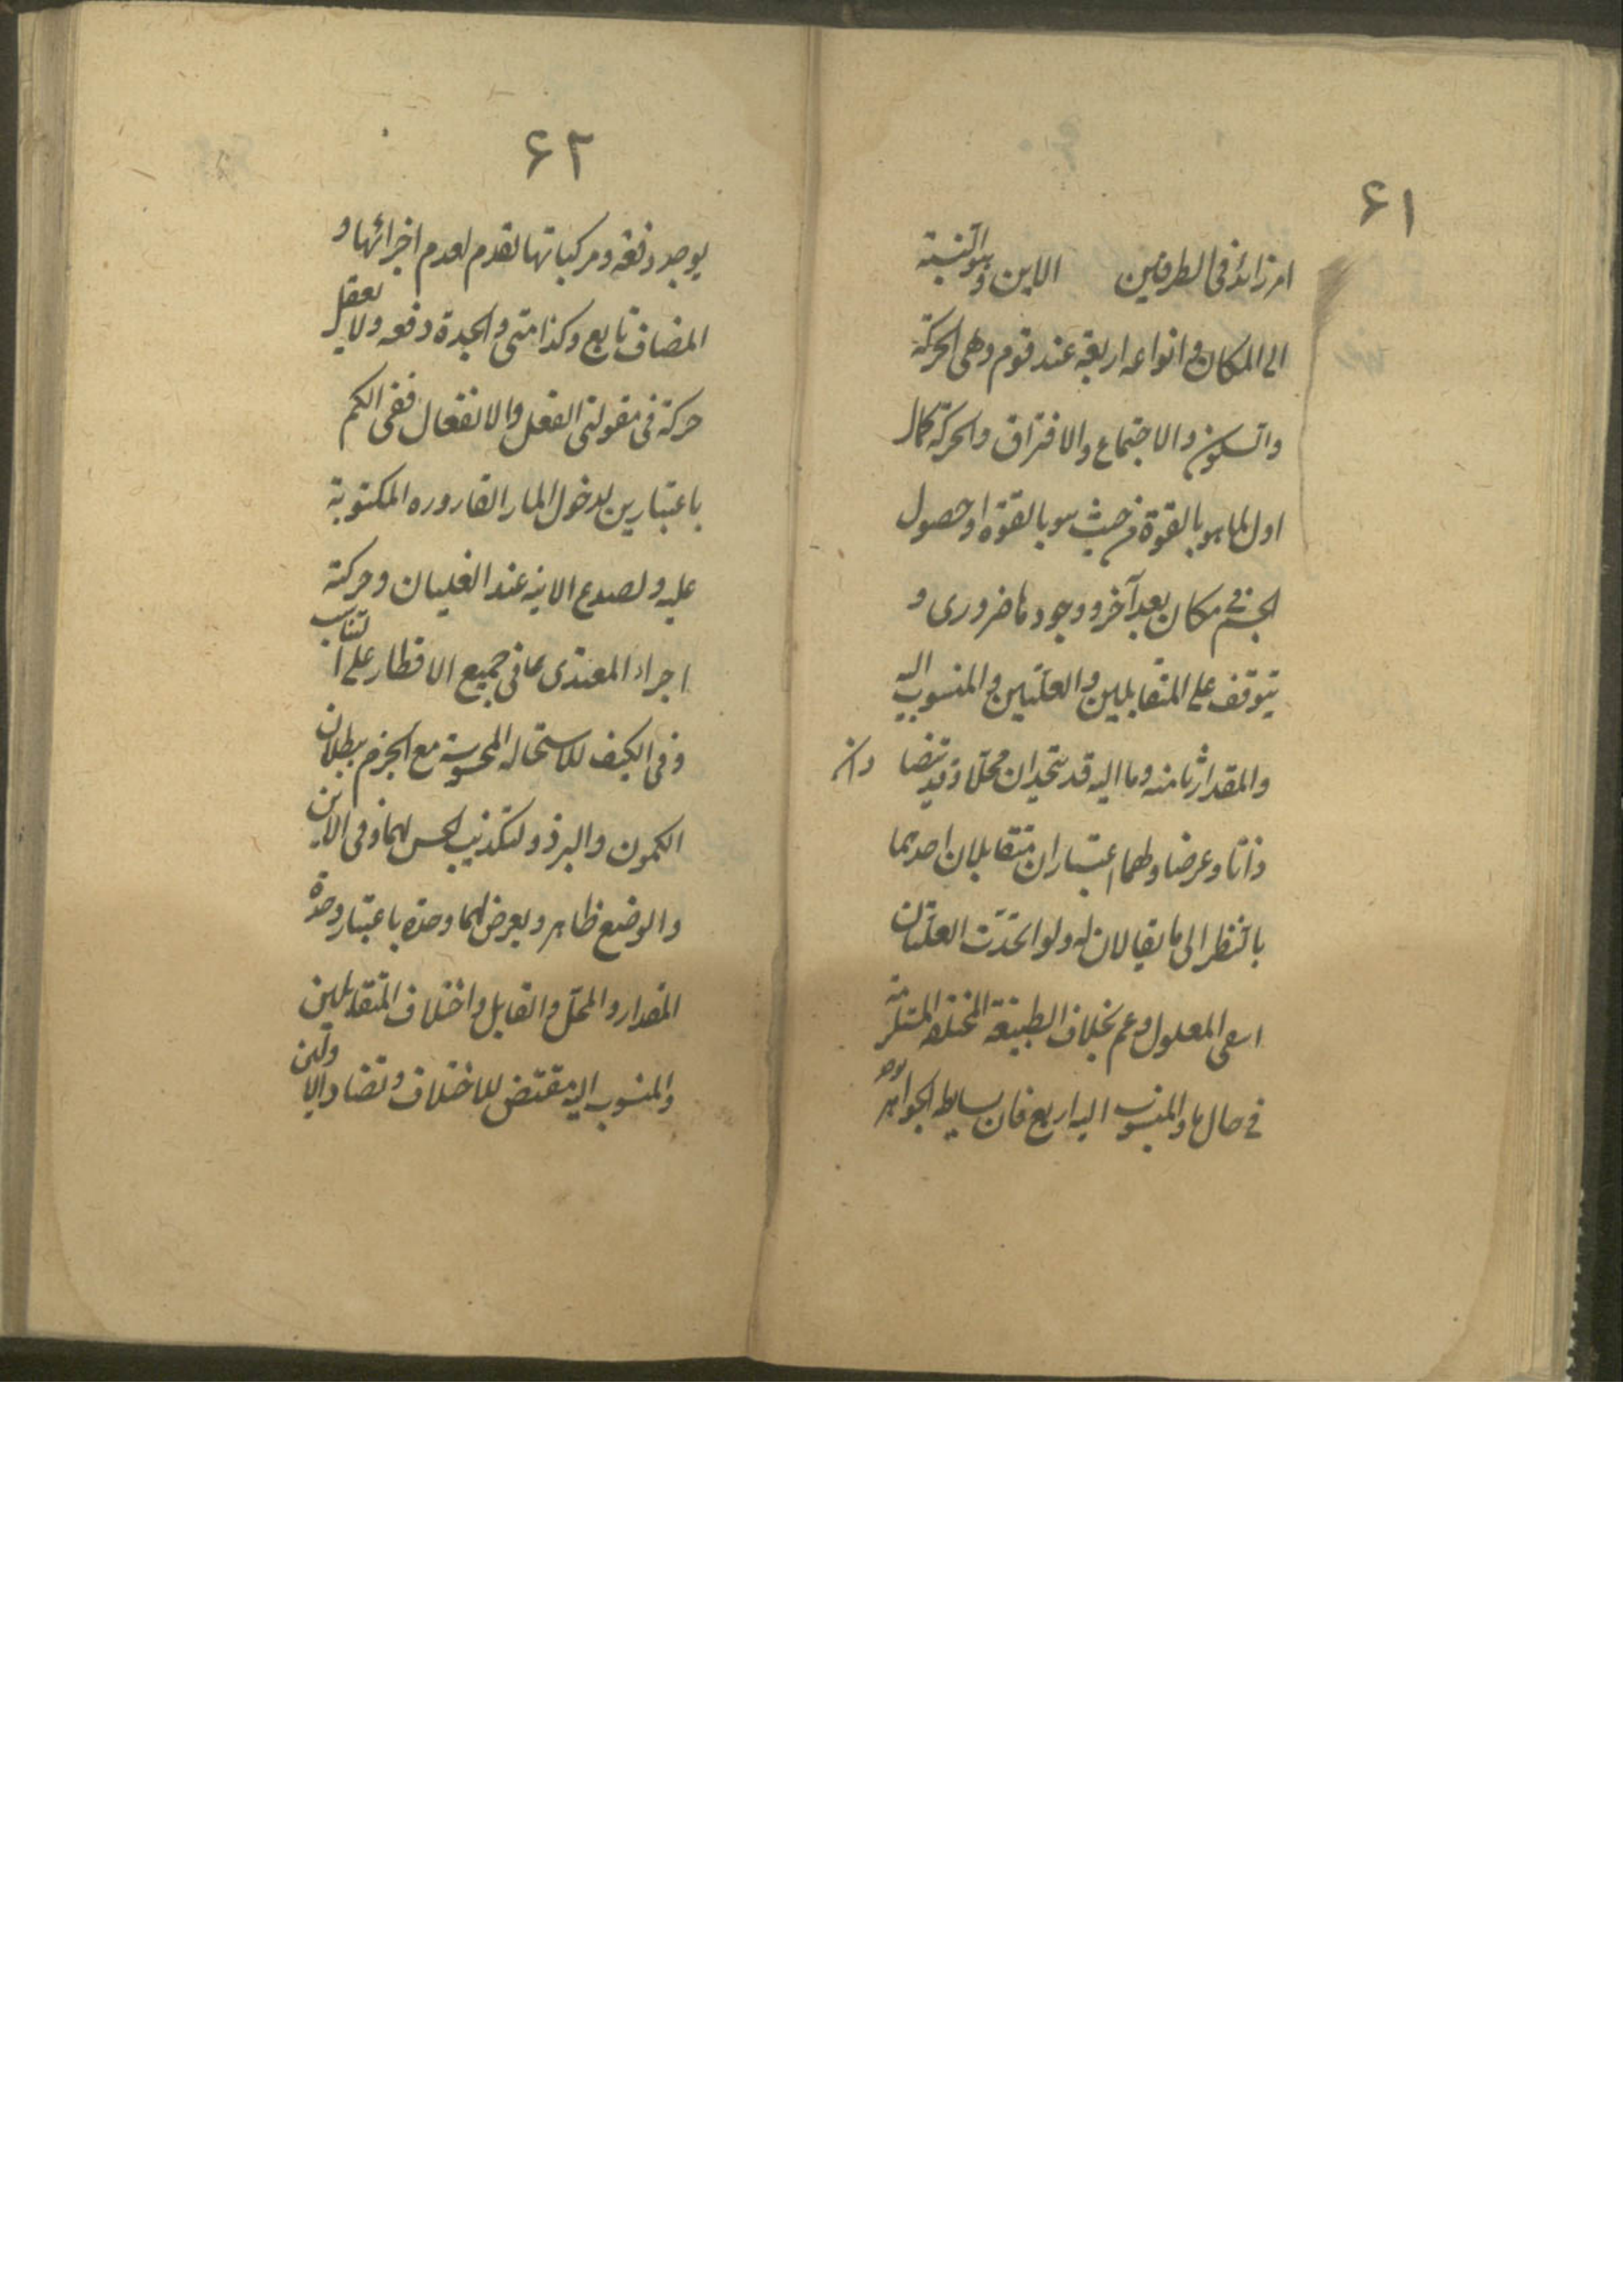 ۶۱
امر زائد فی الطرفین الاین وهو النسبة
الی المکان وانواعه اربعة عند قوم وهی الحرکة
والسکون والاجتماع والافتراق والحرکة کمال
اول لما هو بالقوة من حیث هو بالقوة او حصول
الجسم فی مکان بعد آخر ووجودها ضروری و
یتوقف علی المتقابلین والعلتین والمنسوب الیه
والمقدار فما منه وما الیه قد یتحدان محلا وقد یتضادان
ذاتا وعرضا ولهما اعتباران متقابلان احدهما
بالنظر الی ما یقالان له ولو اتحدت العلتان
انتفی المعلول وعم بخلاف الطبیعة المختلفة المستلزمة
فی حال ما والمنسوب الیه اربع فان بسایط الجواهر توجد
۶۲
یوجد دفعة ومرکباتها تعدم لعدم اجزائها و
المضاف تابع وکذا متی والجدة دفعه ولا یعقل
حرکة فی مقولتی الفعل والانفعال ففی الکم
باعتبارین لدخول الماء القاروره المکبوبة
علیه ولصدع الانیه عند الغلیان وحرکة
اجزاء المغتذی فی جمیع الاقطار علی التناسب
وفی الکیف للاستحاله المحسوسة مع الجزم ببطلان
الکمون والبروز ولتکذیب الحس لهما وفی الاین
والوضع ظاهر ویعرض لهما وحدة باعتبار وحدة
المقدار والمحل والقابل واختلاف المتقابلین
والمنسوب الیه مقتض للاختلاف وتضاد الاولین